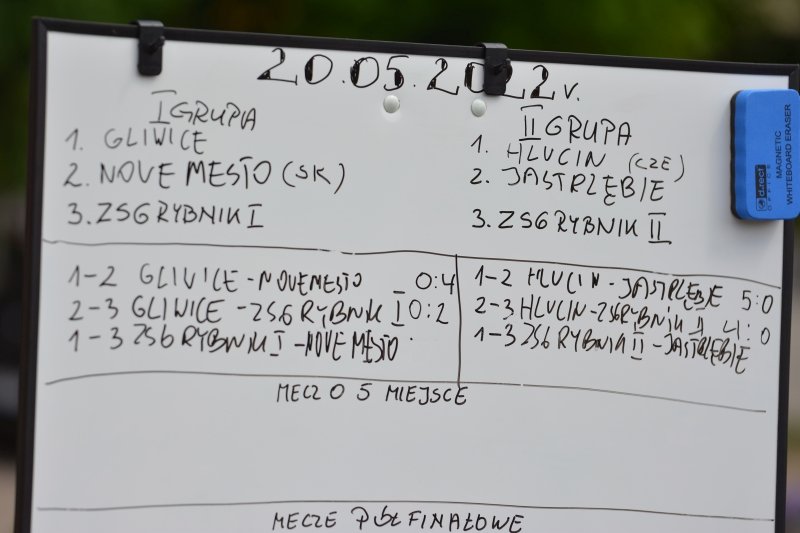 20.05.2022 r.
I GRUPA
1. GLIWICE
2. NOVE MESTO (SK)
3. ZSG RYBNIK I
II GRUPA
1. HLUCIN (CZE)
2. JASTRZĘBIE
3. ZSG RYBNIK II
1-2 GLIWICE - NOVE MESTO _ 0:4
2-3 GLIWICE - ZSG RYBNIK I 0:2
1-3 ZSG RYBNIK I - NOVE MESTO
1-2 HLUCIN - JASTRZĘBIE 5:0
2-3 HLUCIN - ZSG RYBNIK II 4:0
1-3 ZSG RYBNIK II - JASTRZĘBIE
MECZ O 5 MIEJSCE
MECZE PÓŁFINAŁOWE
d.rect
MAGNETIC
WHITEBOARD ERASER